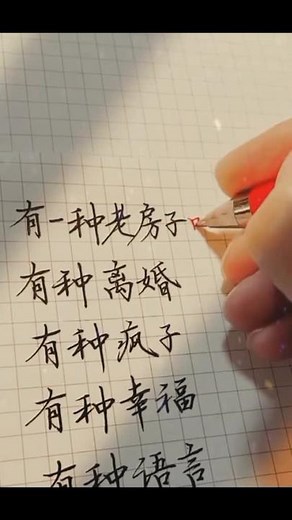 有一种老房子
有种离婚
有种疯子
有种幸福
有种语言